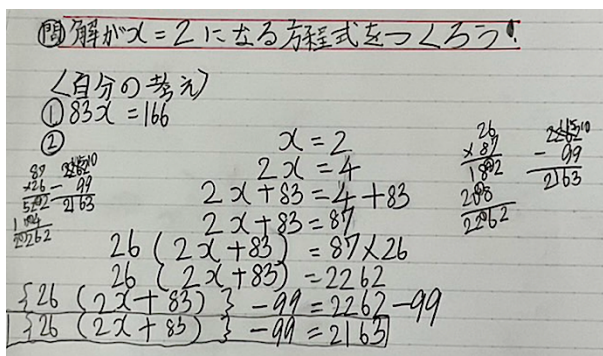 問 解がx=2になる方程式をつくろう!
〈自分の考え〉
① 83x=166
②
x=2
2x=4
2x+83=4+83
2x+83=87
26(2x+83)=87×26
26(2x+83)=2262
{26(2x+83)}-99=2262-99
{26(2x+83)}-99=2163
87
×26
2262
-99
2163
26
×87
182
208
2262
-99
2163